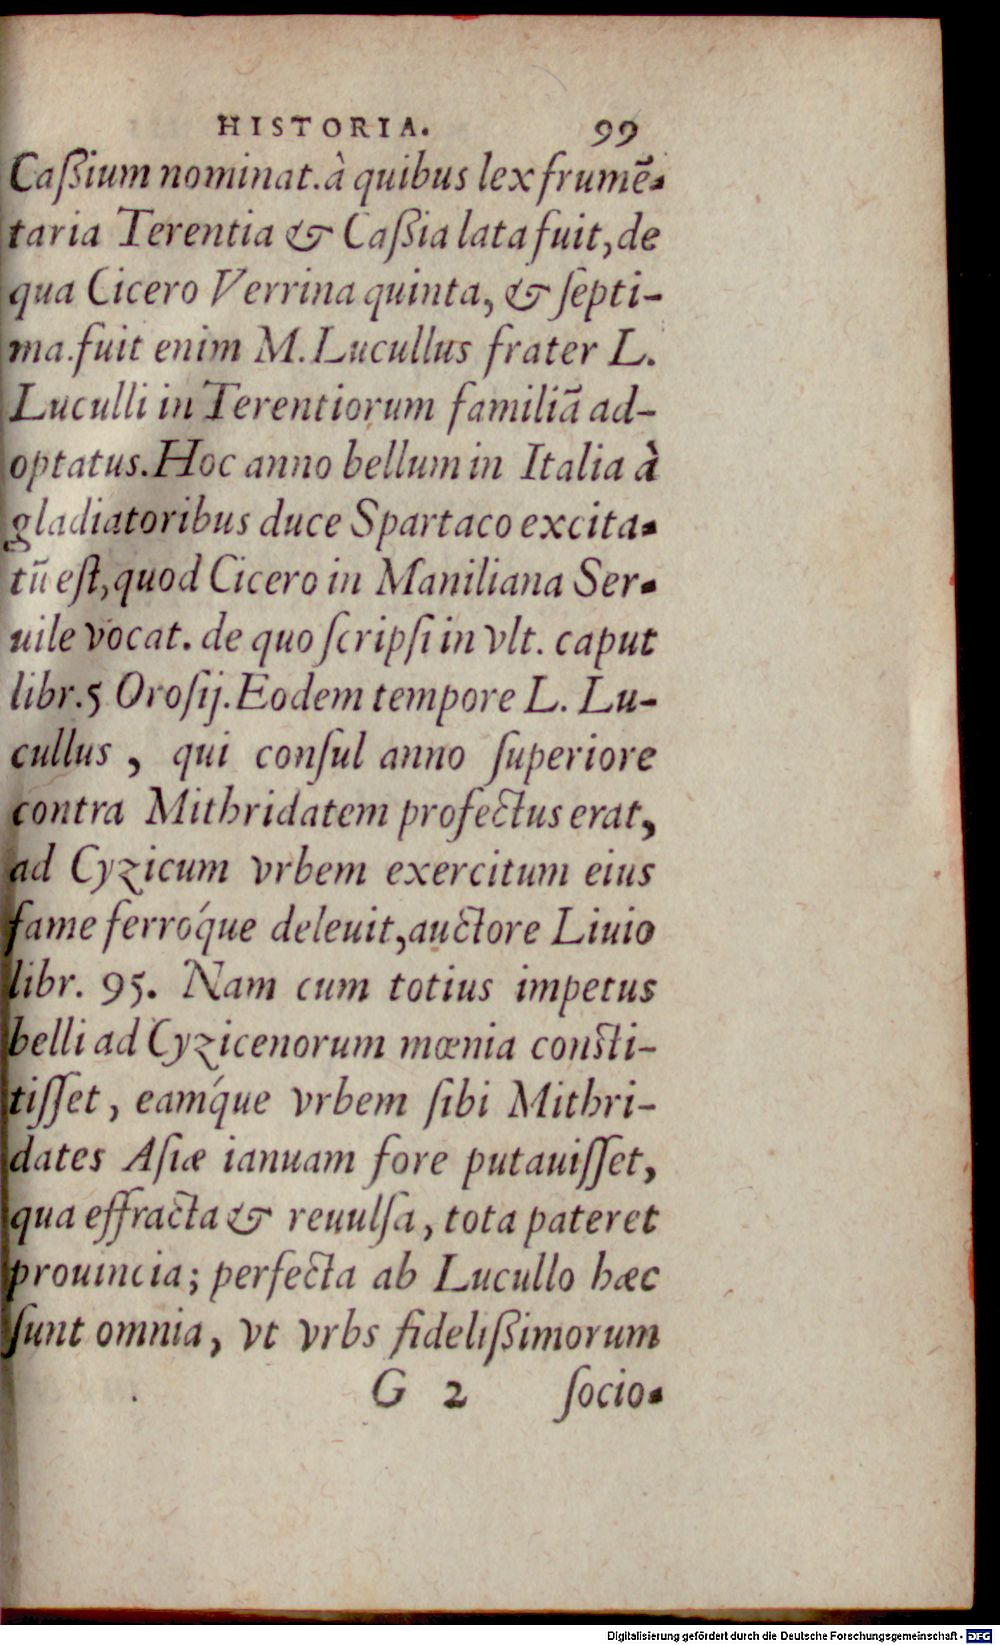 HISTORIA. 99
Caſſium nominat. à quibus lex frumē-
taria Terentia & Caſſia lata fuit, de
qua Cicero Verrina quinta, & ſepti-
ma. fuit enim M. Lucullus frater L.
Luculli in Terentiorum familiā ad-
optatus. Hoc anno bellum in Italia à
gladiatoribus duce Spartaco excita-
tū eſt, quod Cicero in Maniliana Ser-
uile vocat. de quo ſcripſi in vlt. caput
libr. 5 Oroſij. Eodem tempore L. Lu-
cullus, qui conſul anno ſuperiore
contra Mithridatem profectus erat,
ad Cyzicum vrbem exercitum eius
fame ferróque deleuit, auctore Liuio
libr. 95. Nam cum totius impetus
belli ad Cyzicenorum mœnia conſti-
tiſſet, eamq́ue vrbem ſibi Mithri-
dates Aſiæ ianuam fore putauiſſet,
qua effracta & reuulſa, tota pateret
prouincia; perfecta ab Lucullo hæc
ſunt omnia, vt vrbs fideliſſimorum
G 2 ſocio-
Digitalisierung gefördert durch die Deutsche Forschungsgemeinschaft - DFG